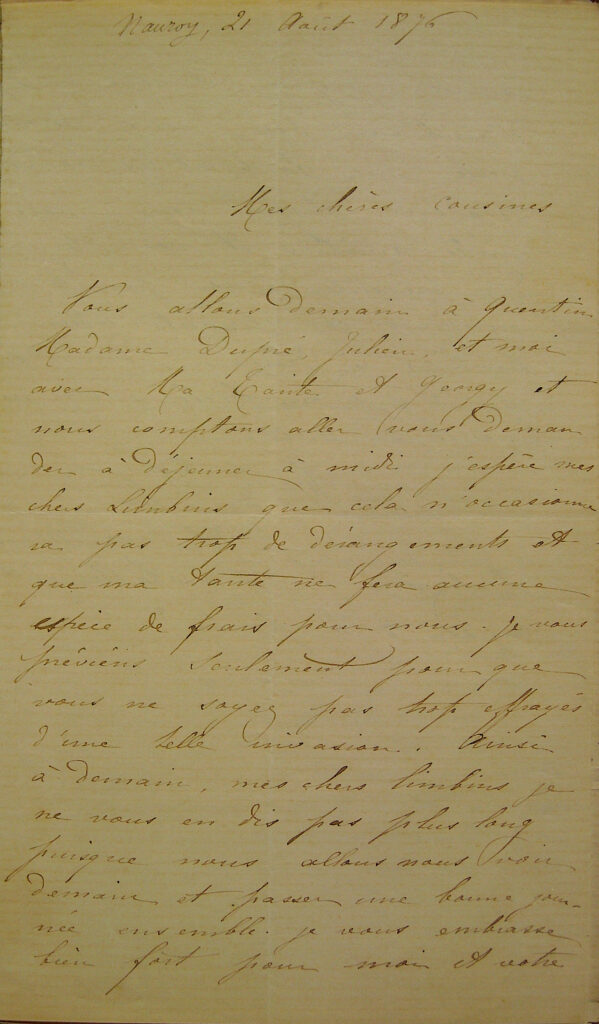 Nauroy, 21 Août 1876
Mes chères cousines
Nous allons demain à Quentin
Madame Dupré, Julien, et moi
avec Ma Tante et Georgy et
nous comptons aller vous deman
der à déjeuner à midi j'espère mes
chers Limbins que cela n'occasionne
ra pas trop de dérangements et
que ma tante ne fera aucune
espèce de frais pour nous. je vous
préviens seulement pour que
vous ne soyez pas trop effrayés
d'une telle invasion. Ainsi
à demain, mes chers limbins je
ne vous en dis pas plus long
puisque nous allons nous voir
demain et passer une bonne jour-
née ensemble. je vous embrasse
bien fort pour moi et votre